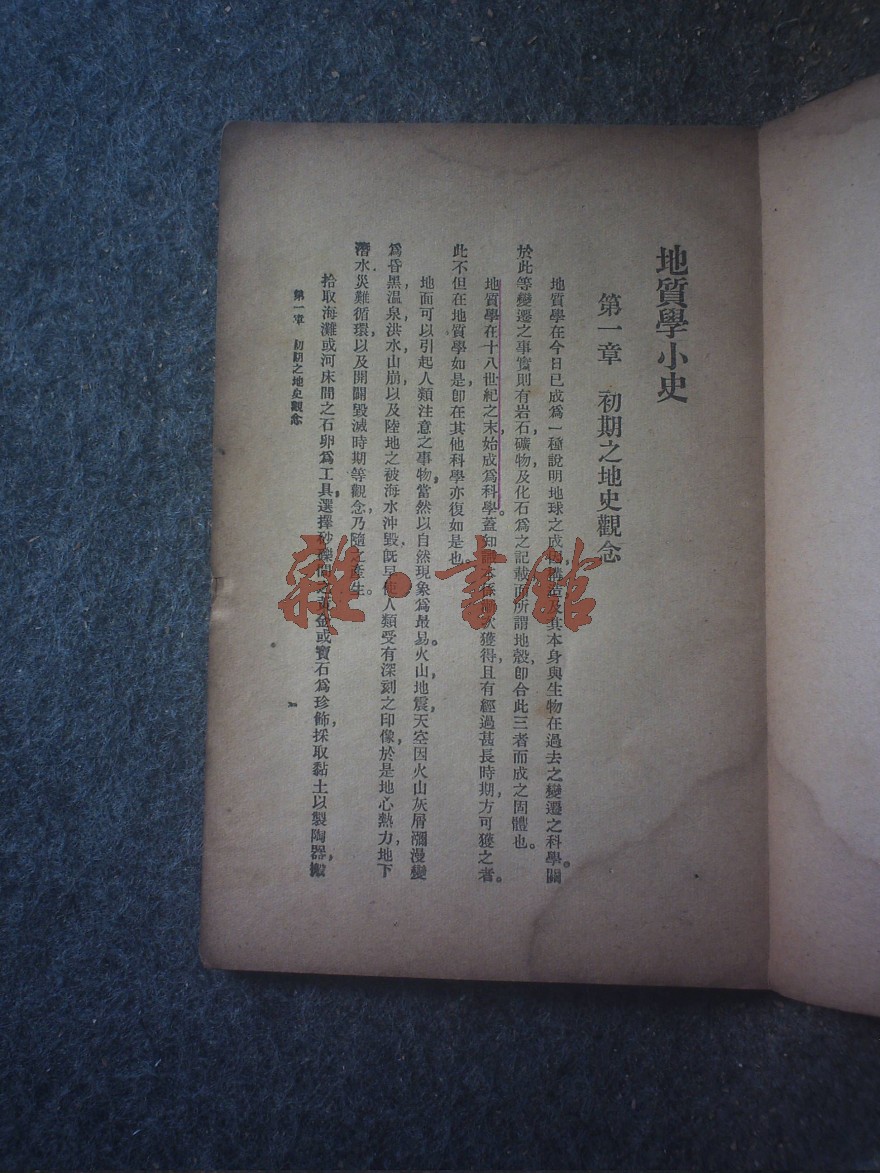 地質學小史
第一章　初期之地史觀念
地質學在今日已成爲一種說明地球之成因構造及其本身與生物在過去之變遷之科學。關
於此等變遷之事實，則有岩石，礦物，及化石爲之記載，而所謂地殼，即合此三者而成之固體也。
地質學在十八世紀之末，始成爲科學。蓋知識本採漸次獲得，且有經過甚長時期，方可獲之者。
此不但在地質學如是，即在其他科學亦復如是也。
地面可以引起人類注意之事物，當然以自然現象爲最易。火山，地震，天空因火山灰屑瀰漫變
爲昏黑，溫泉，洪水，山崩，以及陸地之被海水沖毀，旣早使人類受有深刻之印像，於是地心熱力，地下
潛水，災難循環，以及開闢毀滅時期等觀念，乃隨之產生。
拾取海灘或河床間之石卵爲工具，選擇砂礫間之黃金或寶石爲珍飾，採取黏土以製陶器，搬
第一章　初期之地史觀念
一
雜·書館